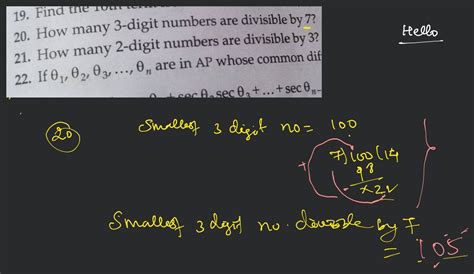 19. Find the
20. How many 3-digit numbers are divisible by 7?
21. How many 2-digit numbers are divisible by 3?
22. If θ₁, θ₂, θ₃, ..., θₙ are in AP whose common dif
sec θ₃ + ... + sec θₙ₋
Hello
20
Smallest 3 digit no = 100
7)100(14
98
x2
+
Smallest 3 digit no. divisible by 7
= 105